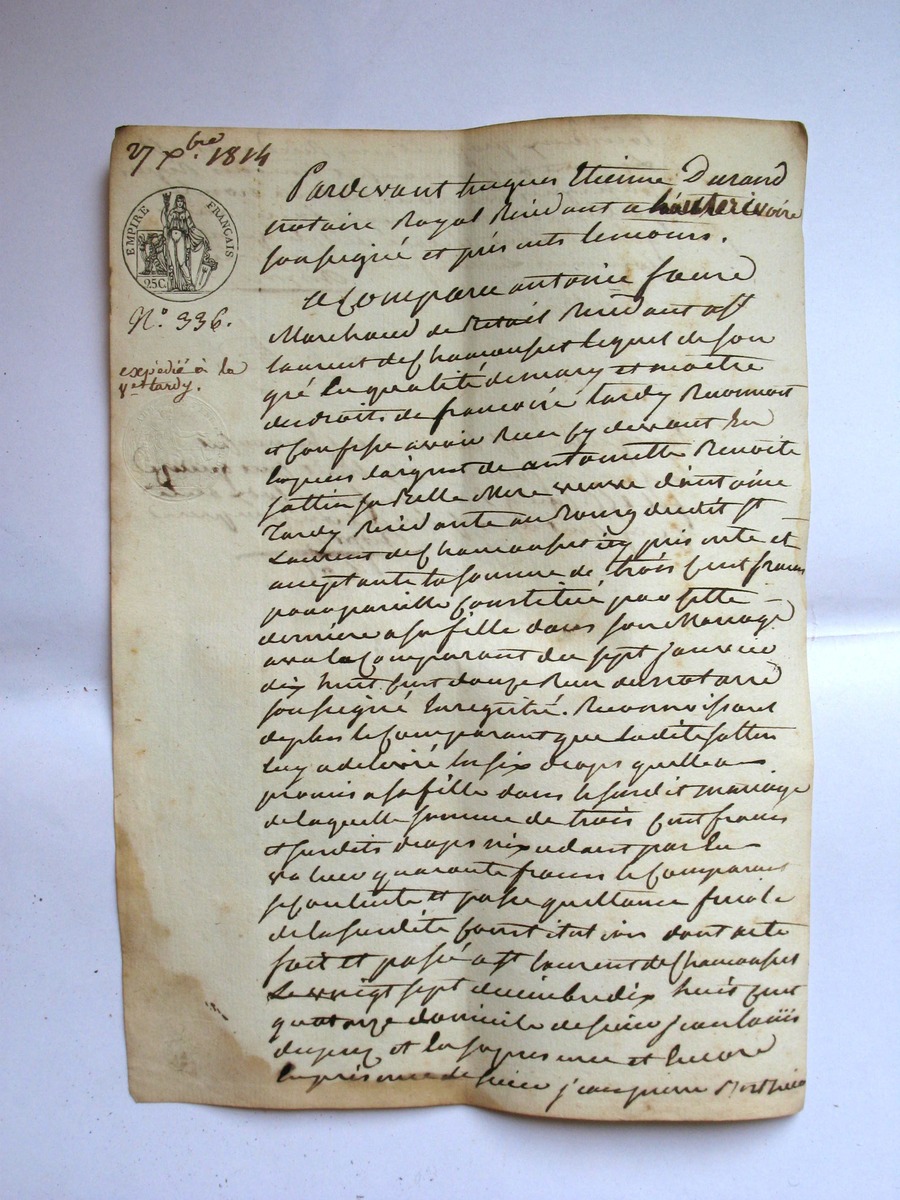 27 Xbre. 1814
EMPIRE FRANÇAIS
25C.
N.º 336.
expédié à la
ve tardy.
Pardevant hugues Etienne Durand
notaire Royal Residant a hauterivoire
soussigné et présents temoins.
a Comparu antoine faure
Marchand de Retail Residant a st
laurent de Chamousset lequel de son
gré En qualité de mary et maitre
des droits de francoise tardy Reconnoit
et Confesse avoir Recu cy devant En
Espèces d'argent de antoinette Benoite
sa Belle Mere veuve d'antoine
Tardy Residante au Bourg du dit st
Laurent de Chamousset icy presente et
acceptante la somme de trois Cent francs
pour pareille Constituée par Cette
derniere a sa fille dans son Mariage
avec le Comparant du sept janvier
dix huit Cent douze Recu du notaire
soussigné Enregistré. Reconnoissant
de plus le Comparant que ladite
luy a delivré les six draps quelle a
promis a sa fille dans le susdit mariage
de laquelle somme de trois Cent francs
et susdits draps
valeur quarante francs le Comparant
se Contente et passe quittance finale
de la susdite Constitution dont acte
fait et passé a st laurent de Chamousset
Le vingt sept decembre dix huit Cent
quatorze domicile de sieur jean louis
et En sa presence et Encore
En presence de sieur jean pierre